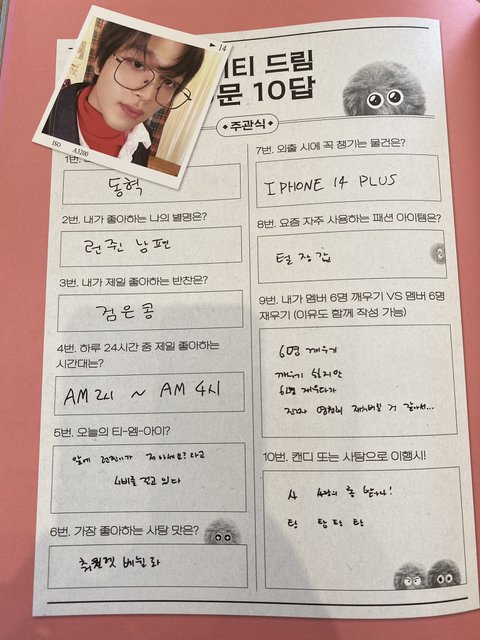 14
티 드림
문 10답
주관식
ISO A3200
1번.
동혁
2번. 내가 좋아하는 나의 별명은?
런쥔 남편
3번. 내가 제일 좋아하는 반찬은?
검은콩
4번. 하루 24시간 중 제일 좋아하는
시간대는?
AM 2시 ~ AM 4시
5번. 오늘의 티-엠-아이?
앞에 런쥔이가 저 아세요? 라고
시비를 걸고 있다
6번. 가장 좋아하는 사탕 맛은?
바닐라
7번. 외출 시에 꼭 챙기는 물건은?
IPHONE 14 PLUS
8번. 요즘 자주 사용하는 패션 아이템은?
털장갑
9번. 내가 멤버 6명 깨우기 VS 멤버 6명
재우기 (이유도 함께 작성 가능)
6명 깨우기
깨우기 싫지만
6명 재우다가
영원히 재워버릴 거 같아서...
10번. 캔디 또는 사탕으로 이행시!
사
탕 탕 탕 탕